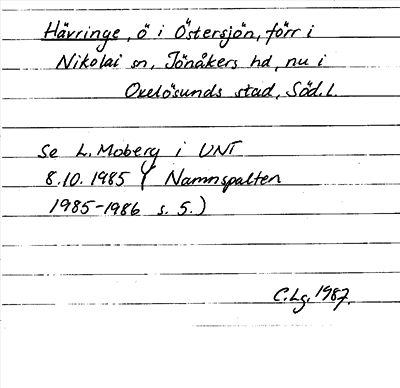 Hävringe, ö i Östersjön, förr i
Nikolai sn, Jönåkers hd, nu i
Oxelösunds stad, Söd.l.
Se L. Moberg i UNT
8.10.1985 ( Namnspalten
1985-1986 s. 5.)
C.Lg. 1987.